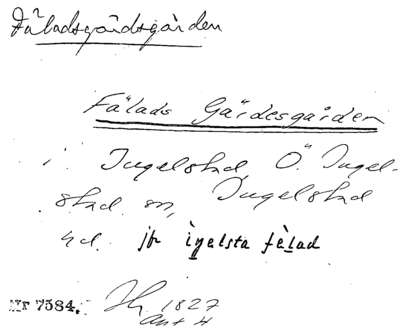 Fäladsgårdsgården
Fälads Gärdesgården
i Ingelstad, Ö. Ingel-
stad sn, Ingelstad
hd. jfr ìŋelsta fè̩lad
Nr 7584. 1827